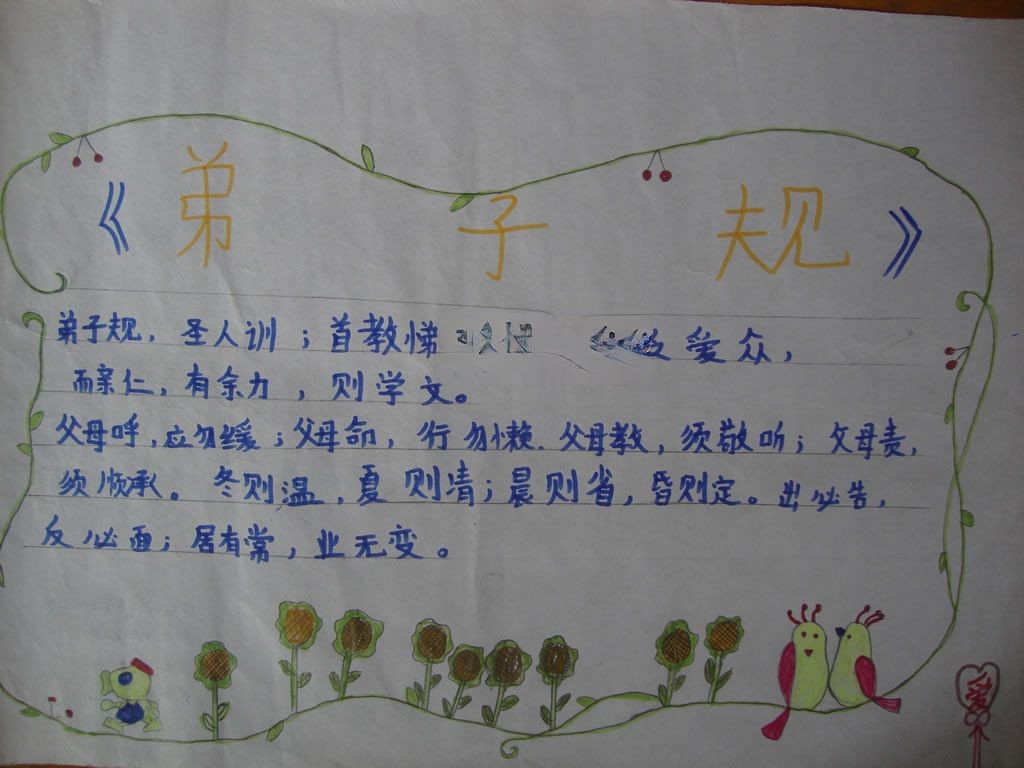 《弟子规》
弟子规，圣人训；首教悌 爱众，
而亲仁，有余力，则学文。
父母呼，应勿缓；父母命，行勿懒．父母教，须敬听；父母责，
须顺承。冬则温，夏则凊；晨则省，昏则定。出必告，
反必面；居有常，业无变。
爱